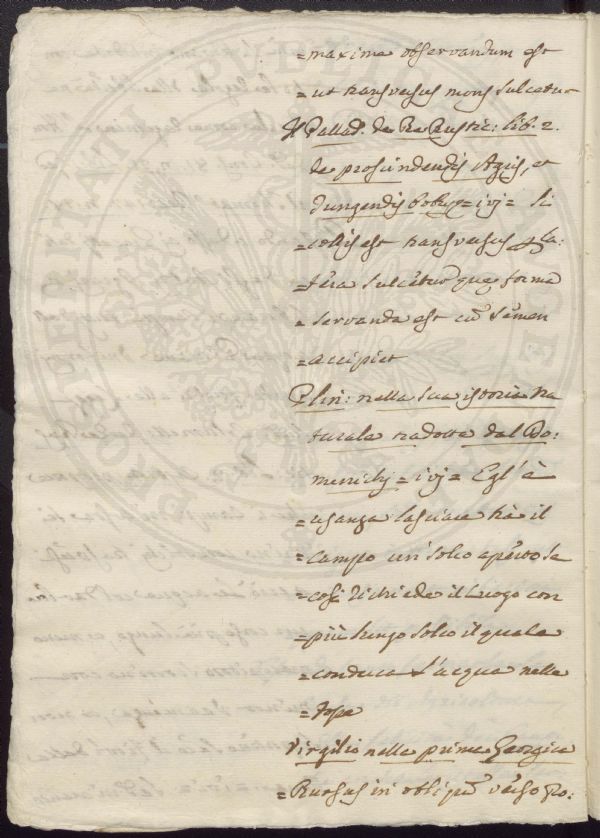 =maxime observandum est
=ut transversus mons sulcetur
Pallad. de Re Rustic: lib. 2.
de proscindendis Agris, et
Jungendis bobus = ivi = Si
=collis est transversus
=tera sulcetur que forma
=servanda est cū semen
=accipiet
Plin: nella sua istoria na
turale tradotta dal Do:
menichi = ivi = Egl'è
=usanza lasciare trà il
=campo un solco aperto se
=così richiede il luogo con
=più lungo solco il quale
=conduca l'acqua nelle
=fosse
Virgilio nella prima Georgica
=Rursus in obliquū verso